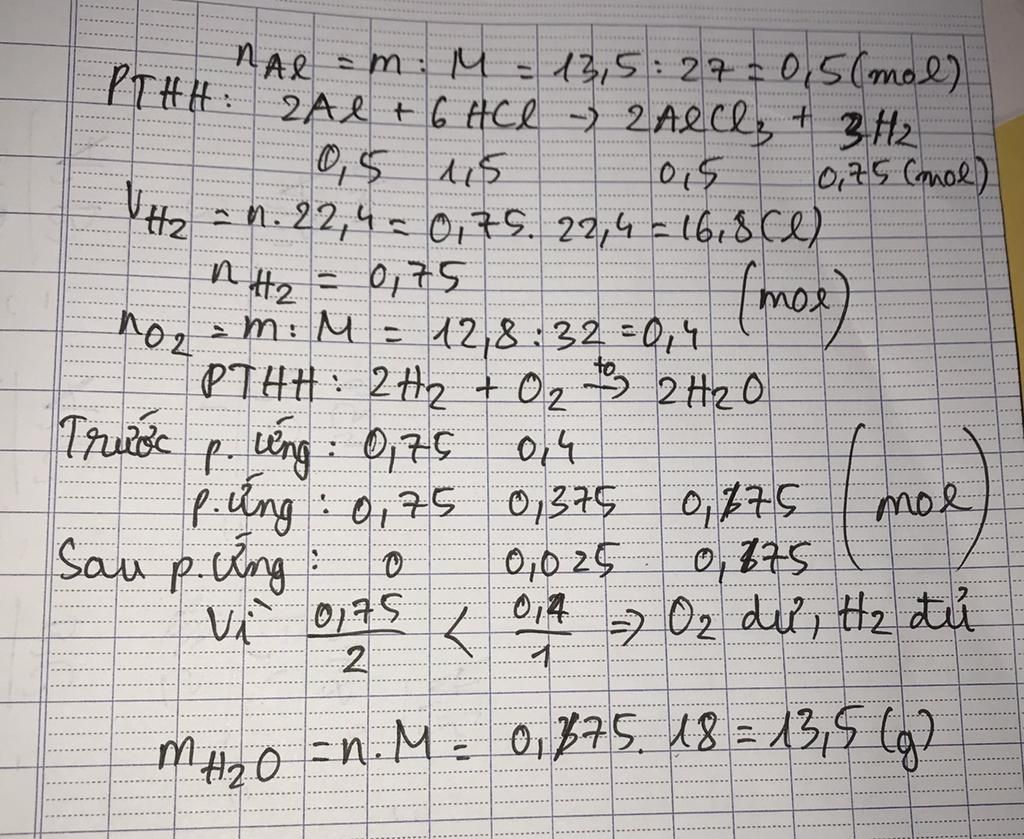 nAl = m : M = 13,5 : 27 = 0,5 (mol)
PTHH: 2Al + 6 HCl → 2AlCl3 + 3H2
0,5 1,5 0,5 0,75 (mol)
VH2 = n. 22,4 = 0,75. 22,4 = 16,8 (l)
nH2 = 0,75
nO2 = m : M = 12,8 : 32 = 0,4 (mol)
PTHH: 2H2 + O2 to→ 2H2O
Trước p. ứng : 0,75 0,4
p.ứng : 0,75 0,375 0,75 (mol)
Sau p.ứng : 0 0,025 0,75
Vì 0,75/2 < 0,4/1 => O2 dư, H2 đủ
mH2O = n. M = 0,75. 18 = 13,5 (g)